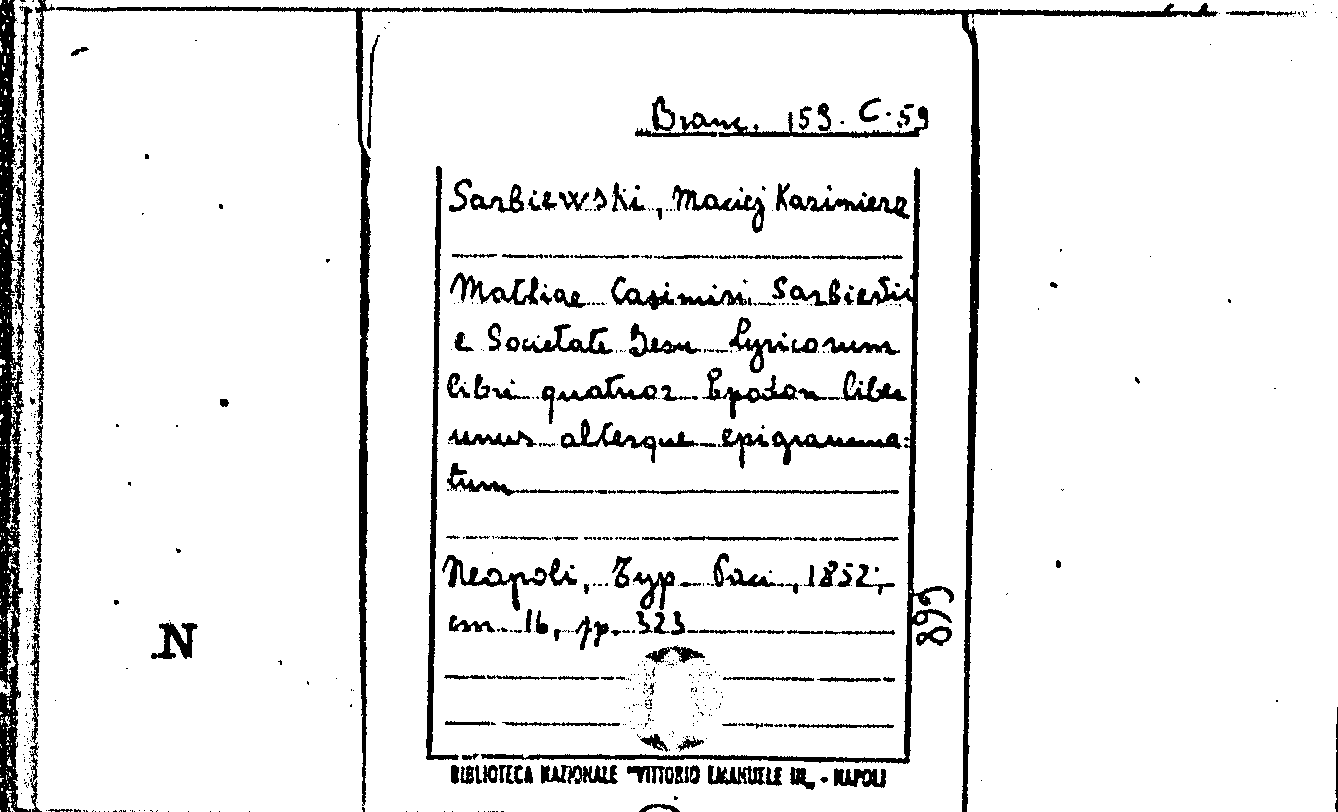 Branc. 159. C. 59
Sarbiewski, Maciej Kazimierz
Mathiae Casimiri Sarbievii
e Societate Iesu Lyricorum
libri quatuor Epodon liber
unus alterque epigramma:
tum
Neapoli, Typ. Paci, 1852;
cm. 16, pp. 323
899
N
BIBLIOTECA NAZIONALE "VITTORIO EMANUELE III„ - NAPOLI